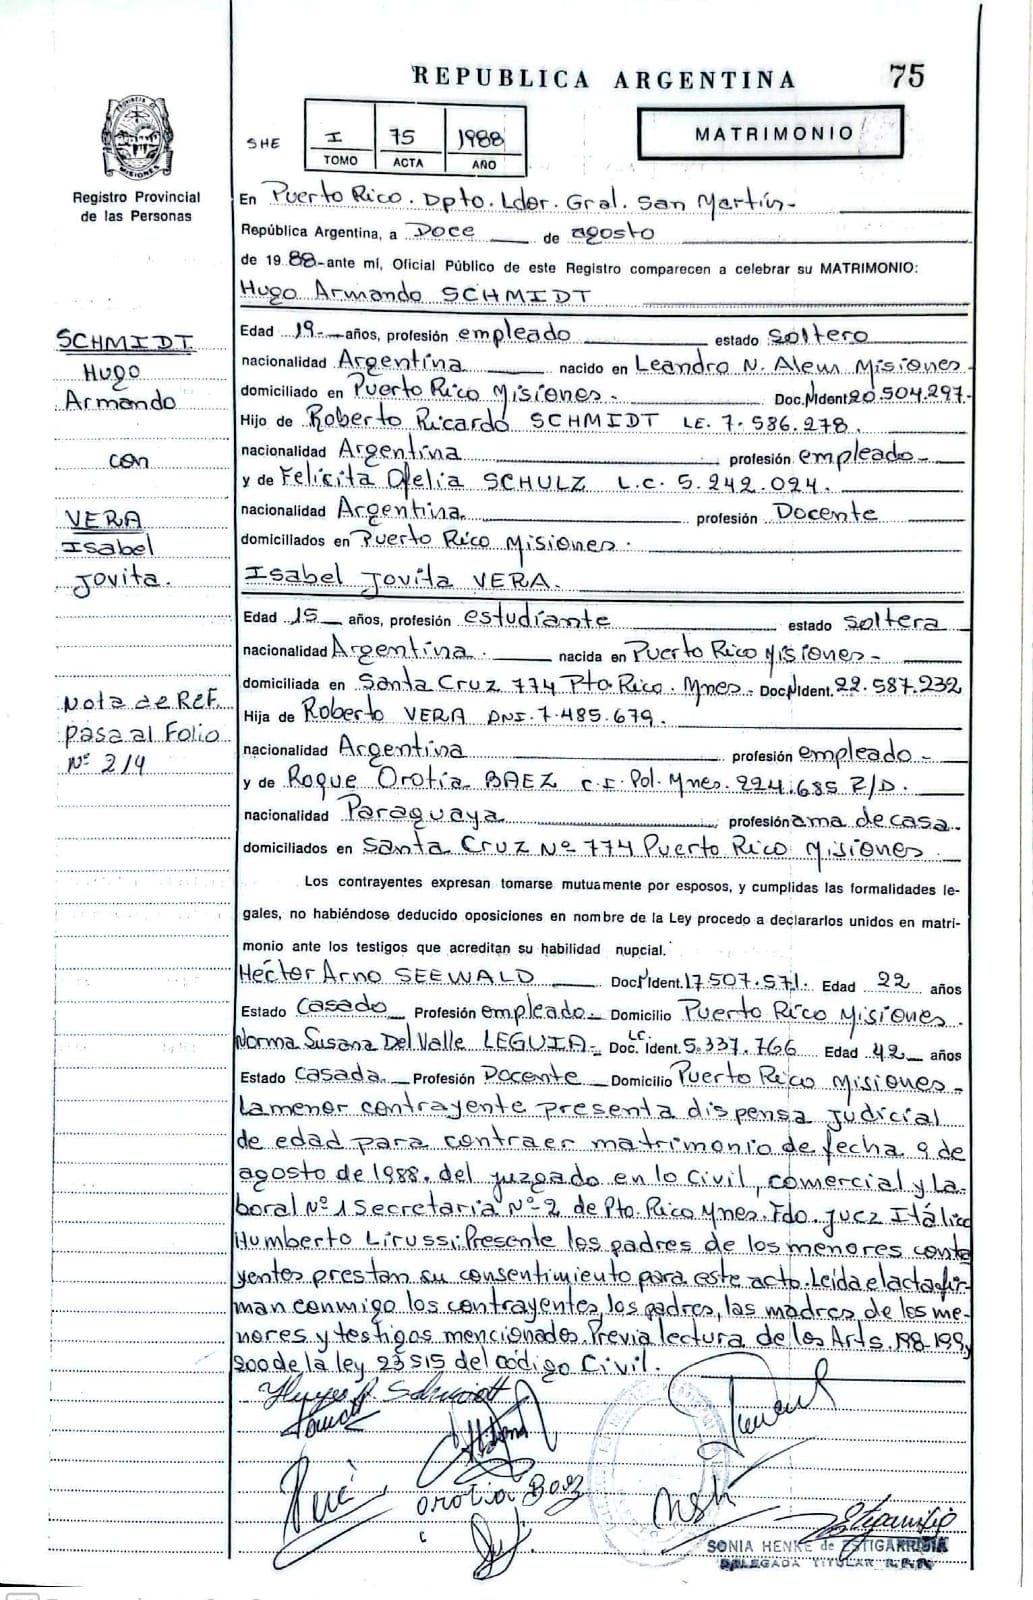 REPUBLICA ARGENTINA 75
PROVINCIA DE
MISIONES
Registro Provincial
de las Personas
SHE
I 75 1988
TOMO ACTA AÑO
MATRIMONIO
En Puerto Rico. Dpto. Ldor. Gral. San Martín-
República Argentina, a Doce de agosto
de 19 88-ante mí, Oficial Público de este Registro comparecen a celebrar su MATRIMONIO:
Hugo Armando SCHMIDT
SCHMIDT
Hugo
Armando
con
VERA
Isabel
Jovita.
Nota de REF.
pasa al Folio
Nº 214
Edad 19- años, profesión empleado estado Soltero
nacionalidad Argentina nacido en Leandro N. Alem Misiones
domiciliado en Puerto Rico Misiones - Doc.NIdent 20.504.297-
Hijo de Roberto Ricardo SCHMIDT LE. 7.586.278.
nacionalidad Argentina profesión empleado-
y de Felicita Ofelia SCHULZ L.C. 5.242.024.
nacionalidad Argentina profesión Docente
domiciliados en Puerto Rico Misiones.
Isabel Jovita VERA.
Edad 15 años, profesión estudiante estado Soltera
nacionalidad Argentina. nacida en Puerto Rico Misiones-
domiciliada en Santa Cruz 774 Pto. Rico. Mnes- Doc.NIdent. 22.587.232
Hija de Roberto VERA DNI. 7.485.679.
nacionalidad Argentina profesión empleado-
y de Roque Orotia BAEZ C.I. Pol. Mnes. 224.685 R/D.
nacionalidad Paraguaya profesión ama de casa.
domiciliados en Santa Cruz Nº 774 Puerto Rico Misiones.
Los contrayentes expresan tomarse mutuamente por esposos, y cumplidas las formalidades le-
gales, no habiéndose deducido oposiciones en nombre de la Ley procedo a declararlos unidos en matri-
monio ante los testigos que acreditan su habilidad nupcial.
Héctor Arno SEEWALD Doc.NIdent. 17.507.571. Edad 22 años
Estado Casado Profesión empleado- Domicilio Puerto Rico Misiones.
Norma Susana Del Valle LEGUIA- Doc. LC. Ident. 5.337.766 Edad 42 años
Estado Casada Profesión Docente Domicilio Puerto Rico Misiones-
La menor contrayente presenta dispensa judicial
de edad para contraer matrimonio de fecha 9 de
agosto de 1988. del juzgado en lo Civil, comercial y La-
boral Nº 1 Secretaria Nº 2 de Pto. Rico Mnes. Fdo. Juez Itálico
Humberto Lirussi; Presente los padres de los menores contra
yentes prestan su consentimiento para este acto. Leída el acta fir-
man conmigo los contrayentes, los padres, las madres de los me-
nores y testigos mencionados. Previa lectura de los Arts. 198-199 y
200 de la ley 23515 del código Civil.
Schmidt
Orotia Baez
SONIA HENKE de ESTIGARRIBIA
DELEGADA TITULAR R.P.P.